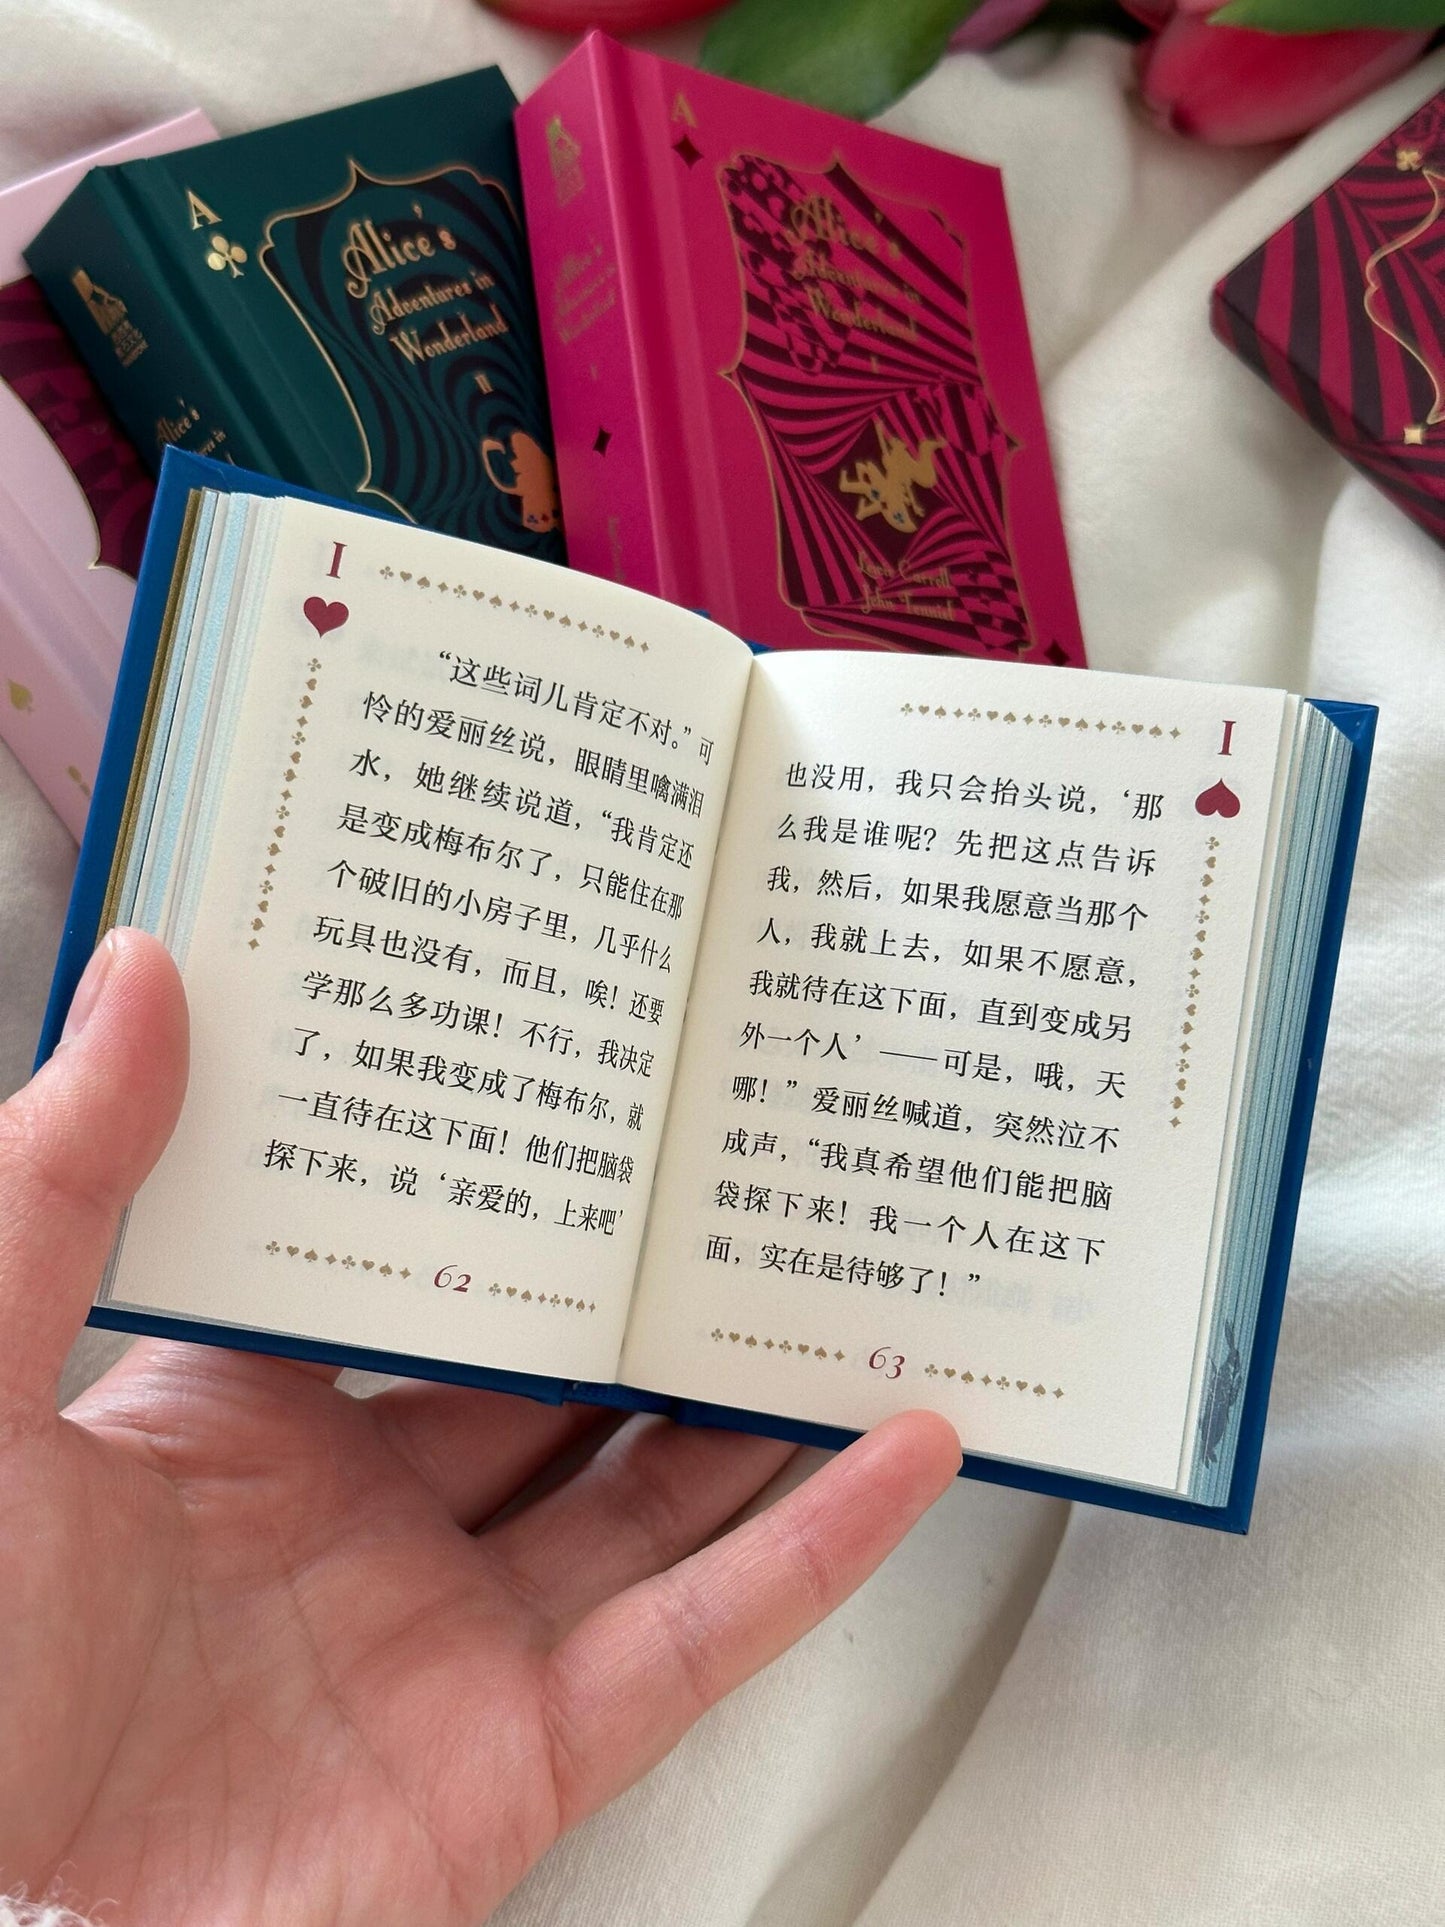 A
Alice's
Adventures in
Wonderland
II
A
Alice's
Adventures in
Wonderland
I
Lewis Carroll
John Tenniel
I
“这些词儿肯定不对。”可
怜的爱丽丝说，眼睛里噙满泪
水，她继续说道，“我肯定还
是变成梅布尔了，只能住在那
个破旧的小房子里，几乎什么
玩具也没有，而且，唉！还要
学那么多功课！不行，我决定
了，如果我变成了梅布尔，就
一直待在这下面！他们把脑袋
探下来，说‘亲爱的，上来吧’
62
I
也没用，我只会抬头说，‘那
么我是谁呢？先把这点告诉
我，然后，如果我愿意当那个
人，我就上去，如果不愿意，
我就待在这下面，直到变成另
外一个人’——可是，哦，天
哪！”爱丽丝喊道，突然泣不
成声，“我真希望他们能把脑
袋探下来！我一个人在这下
面，实在是待够了！”
63